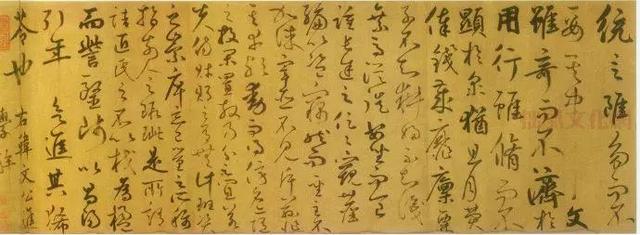 統言雖多而不
要其中 文
雖奇而不濟於
用行雖脩而不
顯於衆猶且月費
俸錢歲靡廩粟
子不知耕婦不知織
乘馬從徒安坐而食
踵常途之役役窺陳
編以盜竊然而聖主不
加誅宰臣不見斥茲非其
幸歟動而得謗名亦隨
之投閑置散乃分之宜若
夫商財賄之有無計班資
之崇庳忘己量之所稱
指前人之瑕疵是所謂
詰匠氏之不以杙為楹
而訾醫師以昌陽
引年 欲進其豨
苓也 右韓文公進
學解